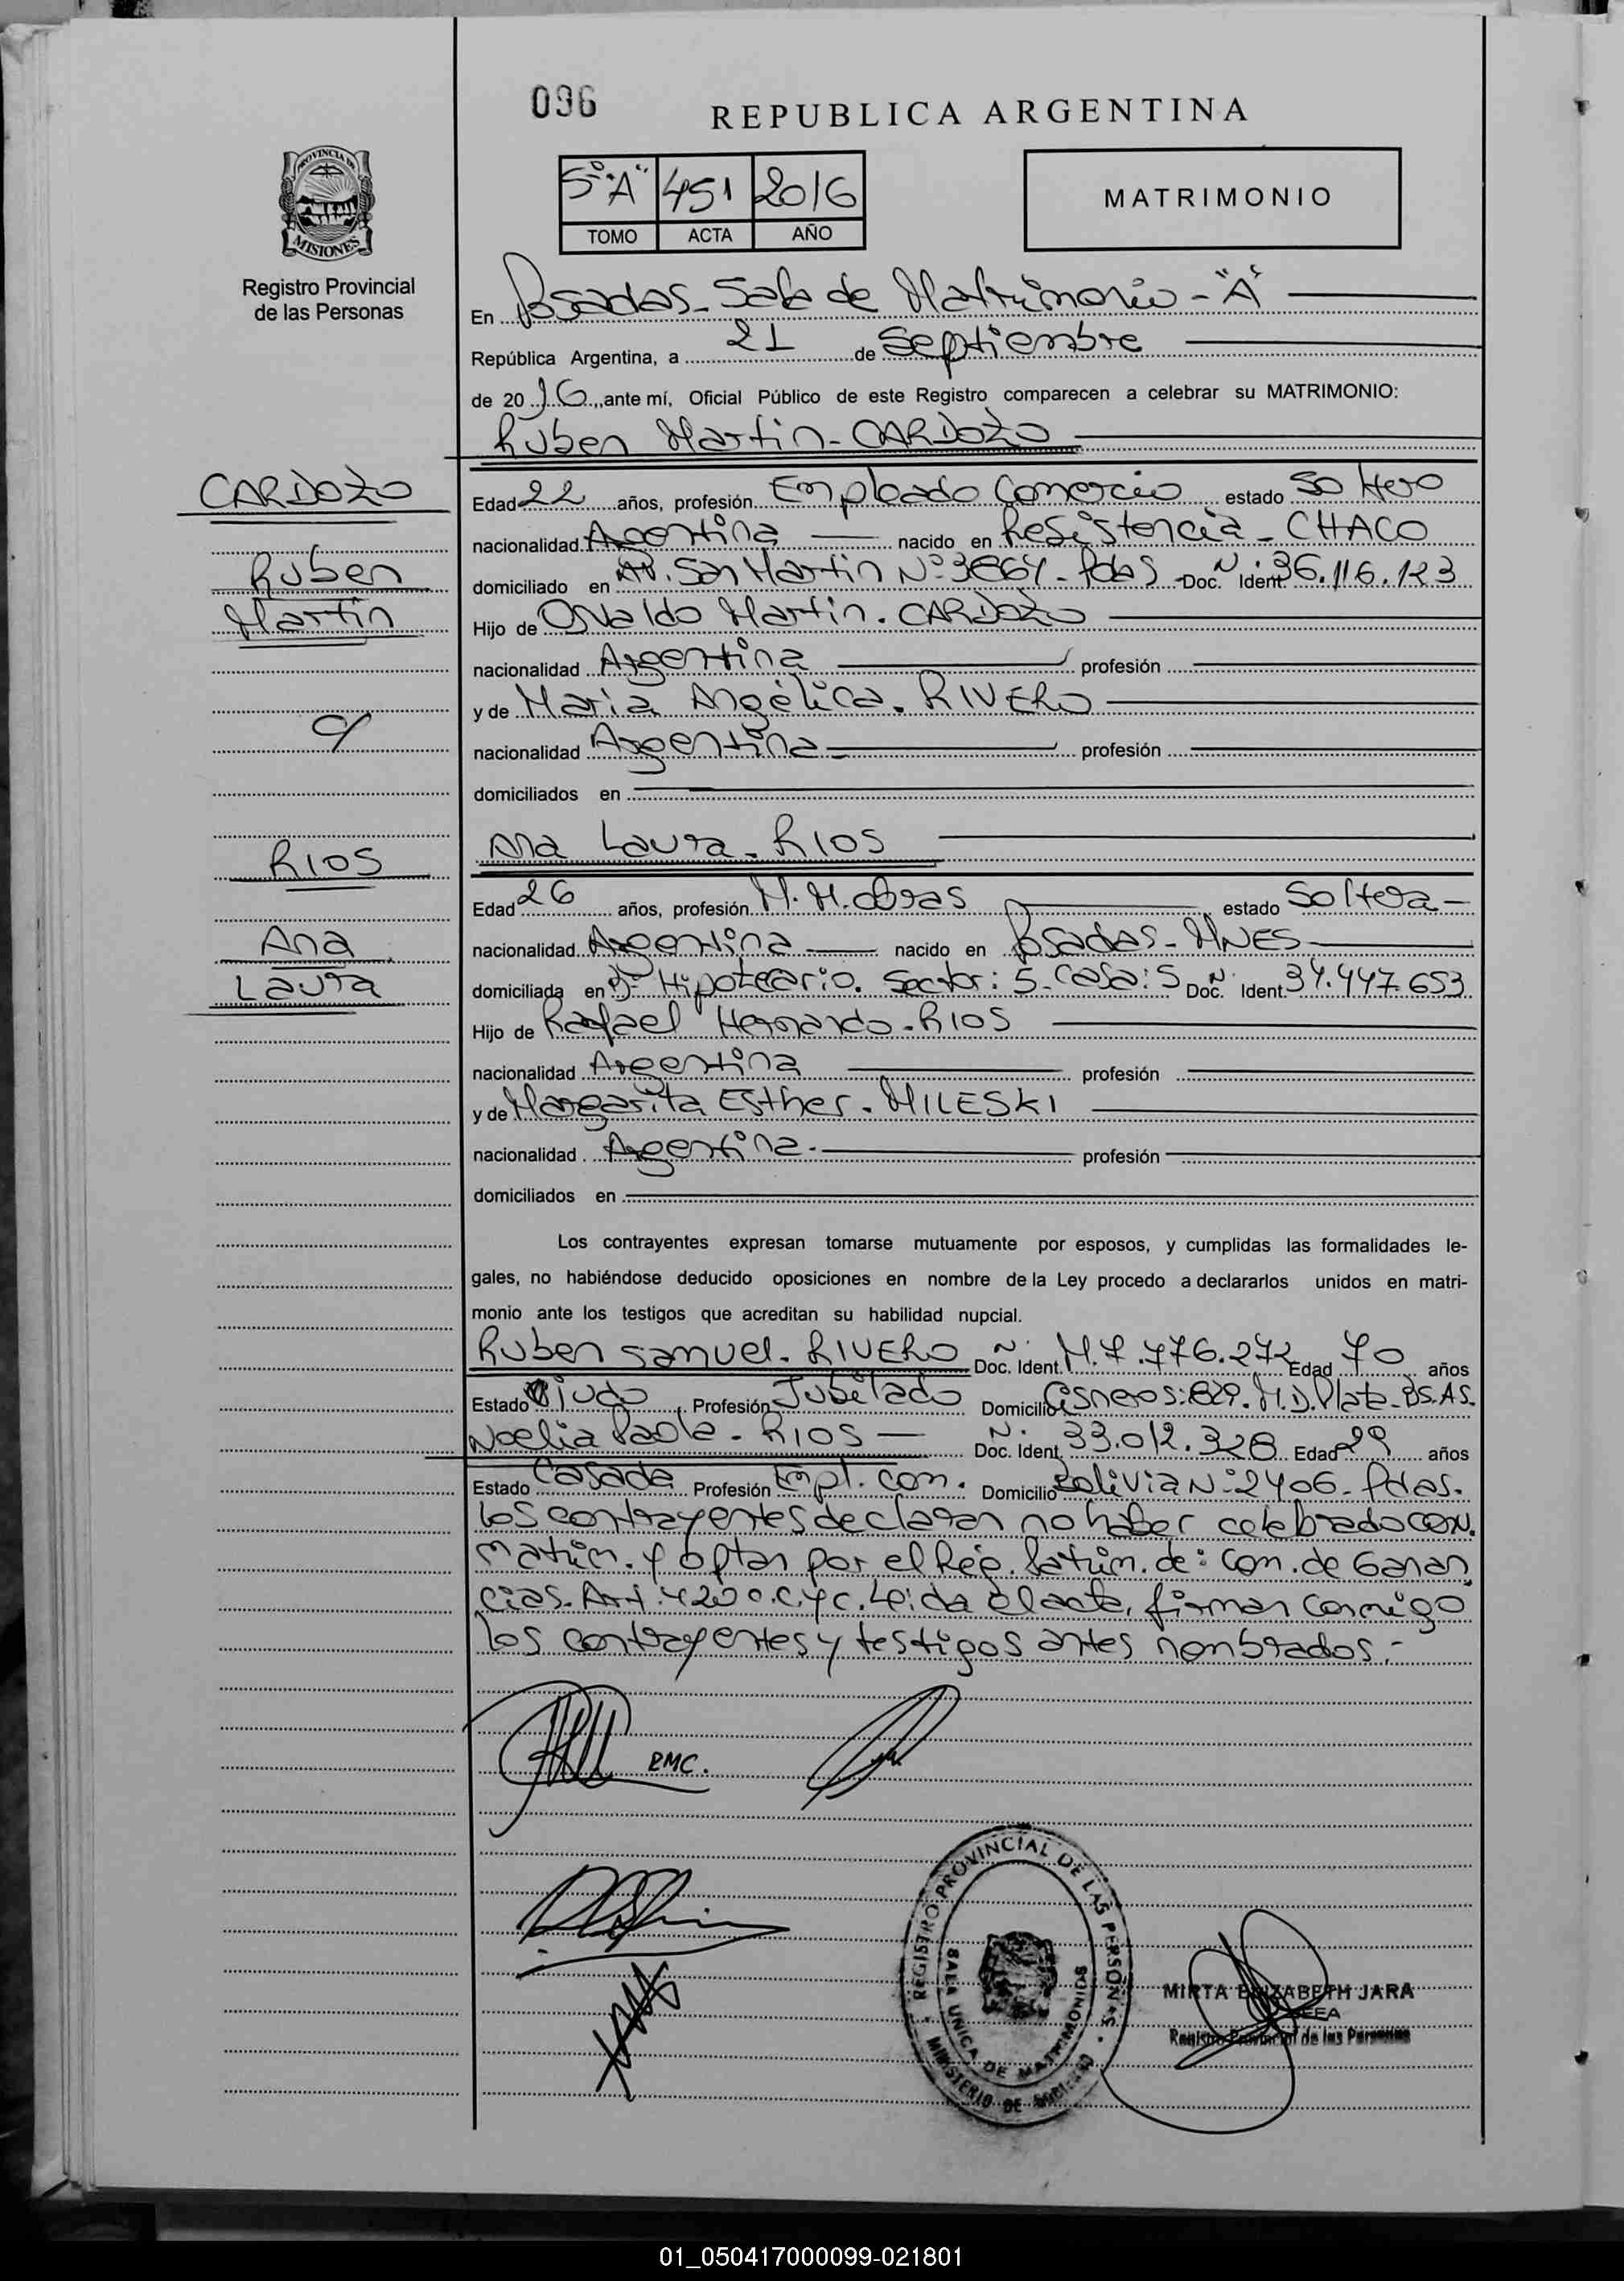 096
REPUBLICA ARGENTINA
PROVINCIA DE
MISIONES
Registro Provincial
de las Personas
5º"A" 451 2016
TOMO ACTA AÑO
MATRIMONIO
En Posadas - Sala de Matrimonio - "A"
República Argentina, a 21 de Septiembre
de 2016, ante mí, Oficial Público de este Registro comparecen a celebrar su MATRIMONIO:
Ruben Martin - CARDOZO
CARDOZO
Ruben
Martin
c/
RIOS
Ana
Laura
Edad 22 años, profesión Empleado Comercio estado Soltero
nacionalidad Argentina nacido en Resistencia - CHACO
domiciliado en AV. San Martin Nº 3864 - Pdas Doc. Ident. Nº 36.116.123
Hijo de Osvaldo Martin. CARDOZO
nacionalidad Argentina profesión
y de Maria Angélica. RIVERO
nacionalidad Argentina profesión
domiciliados en
Ana Laura. RIOS
Edad 26 años, profesión M.M. obras estado Soltera
nacionalidad Argentina nacido en Posadas - MNES
domiciliada en Bº Hipotecario. Sector: 5. Casa: 5 Doc. Nº Ident. 34.447.653
Hijo de Rafael Hernando. RIOS
nacionalidad Argentina profesión
y de Margarita Esther. MILESKI
nacionalidad Argentina profesión
domiciliados en
Los contrayentes expresan tomarse mutuamente por esposos, y cumplidas las formalidades le-
gales, no habiéndose deducido oposiciones en nombre de la Ley procedo a declararlos unidos en matri-
monio ante los testigos que acreditan su habilidad nupcial.
Ruben Samuel. RIVERO Doc. Ident. Nº M.7.776.272 Edad 70 años
Estado Viudo Profesión Jubilado Domicilio Cisneros: 829. M.D. Plata - BS.AS.
Noelia Paola - RIOS Doc. Ident. Nº 33.012.328 Edad 29 años
Estado Casada Profesión Empl. Com. Domicilio Bolivia Nº 2406 - Pdas.
los contrayentes declaran no haber celebrado con.
matrim. y optan por el Rég. Patrim. de: Com. de Ganan
cias. Art. 420 C.y C. Leida el acta, firman conmigo
los contrayentes y testigos antes nombrados.-
RMC.
REGISTRO PROVINCIAL DE LAS PERSONAS
SALA UNICA DE MATRIMONIOS
MINISTERIO DE GOBIERNO
MIRTA ELIZABETH JARA
Registro Provincial de las Personas
01_050417000099-021801